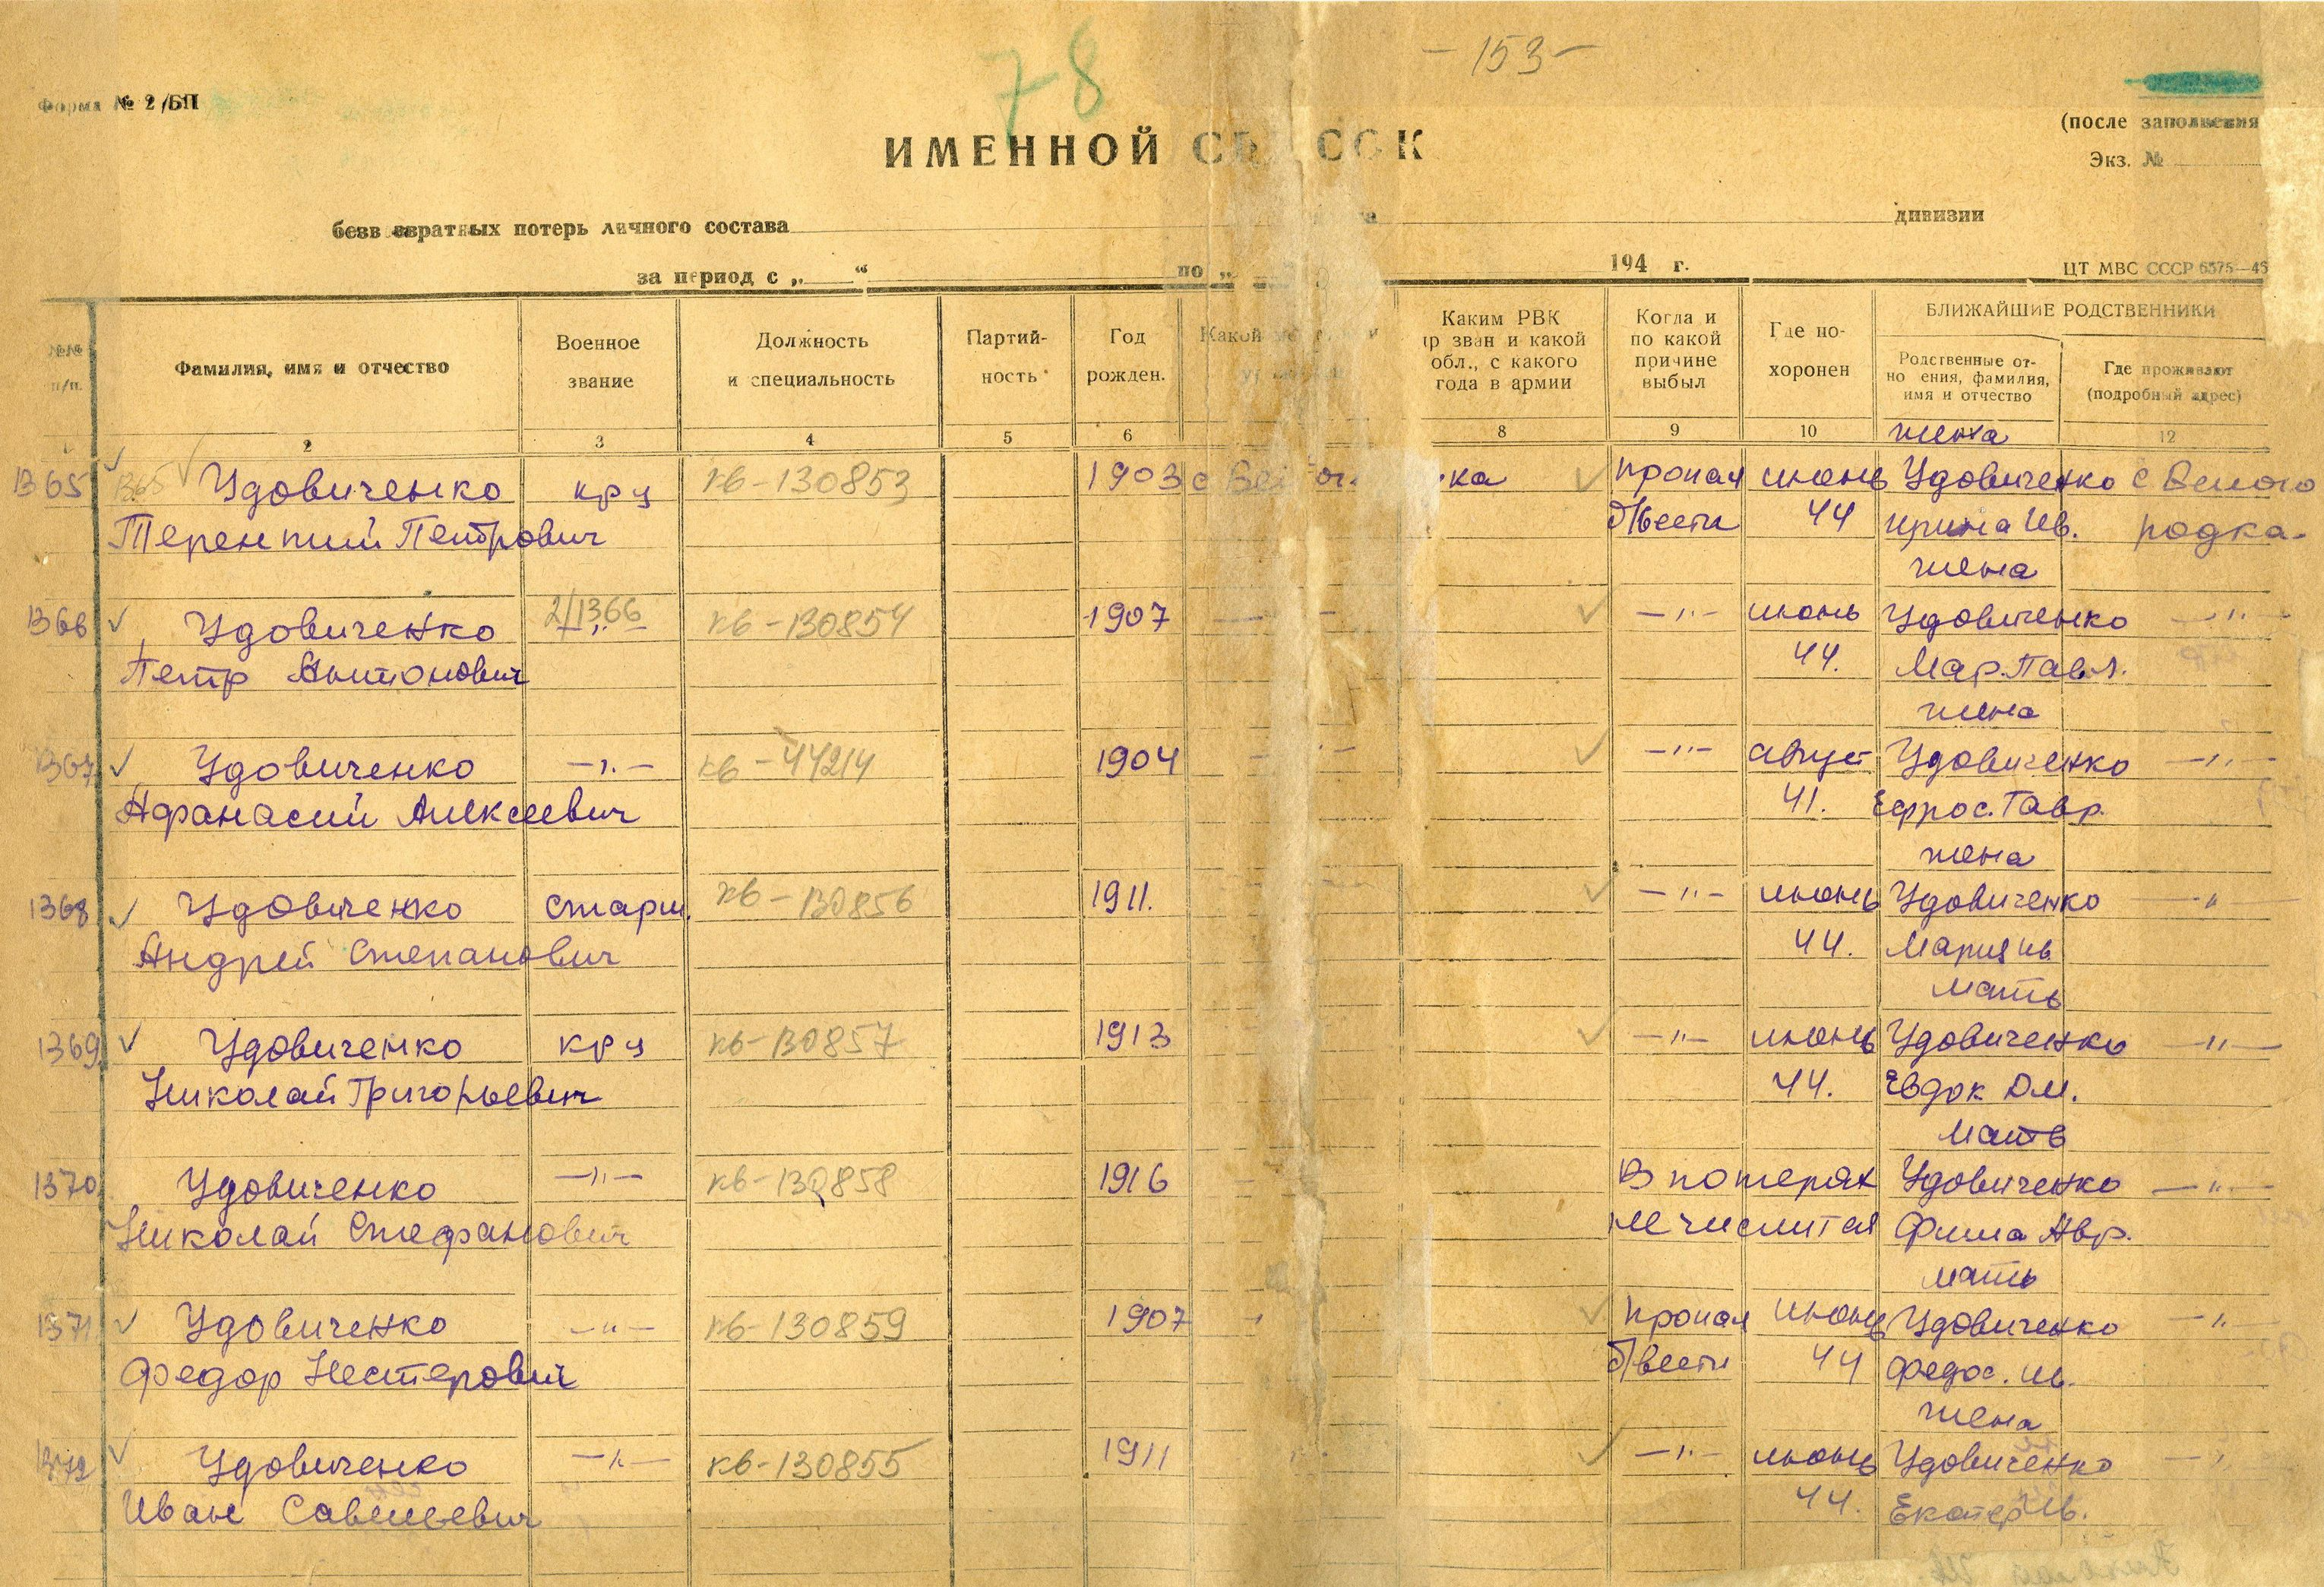 78
- 153 -
Форма № 2/БП
(после заполнения
Экз. №
ИМЕННОЙ СП СОК
безв звратных потерь личного состава дивизии
за период с „ “ по „ 194 г.
ЦТ МВС СССР 6575—45
№№ п/п.
Фамилия, имя и отчество
Военное звание
Должность и специальность
Партий-
ность
Год рожден.
Какой
Каким РВК
пр зван и какой
обл., с какого
года в армии
Когда и
по какой
причине
выбыл
Где по-
хоронен
БЛИЖАЙШИЕ РОДСТВЕННИКИ
Родственные от-
но ения, фамилия,
имя и отчество
Где проживают
(подробный адрес)
2 3 4 5 6 8 9 10 12
жена
1365 1365 Удовиченко кр-ц кв-130853 1903 с ка пропал июнь Удовиченко с Велого
Терентий Петрович б/вести 44 Ирина Ив. родка-
жена
1366 Удовиченко 2/1366 —"— кв-130854 1907 —"— июнь Удовиченко —"—
Петр Антонович 44. Мар. Павл.
жена
1367 Удовиченко —"— кв-44214 1904 —"— август Удовиченко —"—
Афанасий Алексеевич 41. Ефрос. Гавр.
жена
1368 Удовиченко старш. кв-130856 1911. —"— июнь Удовиченко —"—
Андрей Степанович 44. Мария Ив.
мать
1369 Удовиченко кр-ц кв-130857 1913 —"— июнь Удовиченко —"—
Николай Григорьевич 44. Евдок Дм.
мать
1370 Удовиченко —"— кв-130858 1916 В потерях Удовиченко —"—
Николай Стефанович не числится Фима Авр.
мать
1371 Удовиченко —"— кв-130859 1907 пропал июнь Удовиченко —"—
Федор Нестерович б/вести 44 Федос. Ив.
жена
1372 Удовиченко —"— кв-130855 1911 —"— июнь Удовиченко
Иван Савельевич 44. Екатер Ив.